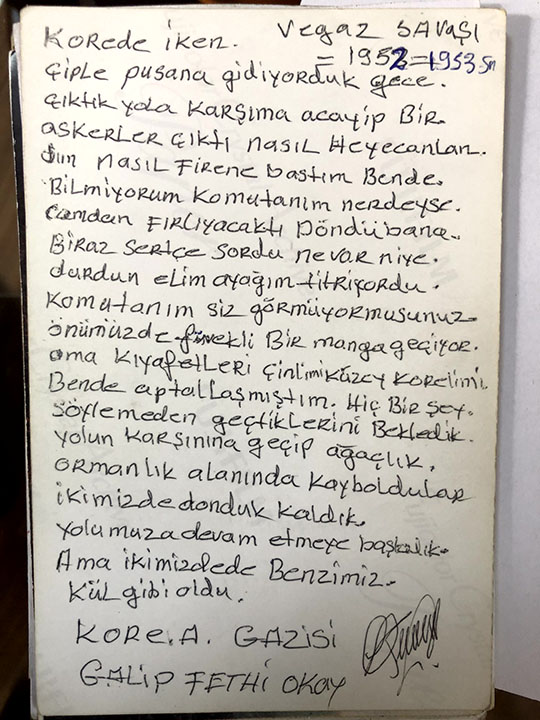 KOREDE İKEN. VEGAZ SAVAŞI
= 1952=1953 Sn
ÇİPLE PUSANA GİDİYORDUK GECE.
ÇIKTIK YOLA KARŞIMA ACAYİP BİR.
ASKERLER ÇIKTI NASIL HEYECANLAN.
DIM NASIL FİRENE BASTIM BENDE.
BİLMİYORUM KOMUTANIM NERDEYSE.
CAMDAN FIRLIYACAKTI DÖNDÜ BANA.
BİRAZ SERTÇE SORDU NEVAR NİYE.
DURDUN ELİM AYAĞIM TİTRİYORDU.
KOMUTANIM SİZ GÖRMÜYORMUSUNUZ.
ÖNÜMÜZDE BİR MANGA GEÇİYOR.
AMA KIYAFETLERİ ÇİNLİMİ KÜZEY KORELİMİ.
BENDE APTALLAŞMIŞTIM. HİÇ BİR ŞEY.
SÖYLEMEDEN GEÇTİKLERİNİ BEKLEDİK.
YOLUN KARŞININA GEÇİP AĞAÇLIK.
ORMANLIK ALANINDA KAYBOLDULAR
İKİMİZDE DONDUK KALDIK.
YOLUMUZA DEVAM ETMEYE BAŞLADIK.
AMA İKİMİZDEDE BENZİMİZ.
KÜL GİBİ OLDU.
KORE.A. GAZİSİ
GALİP FETHİ OKAY